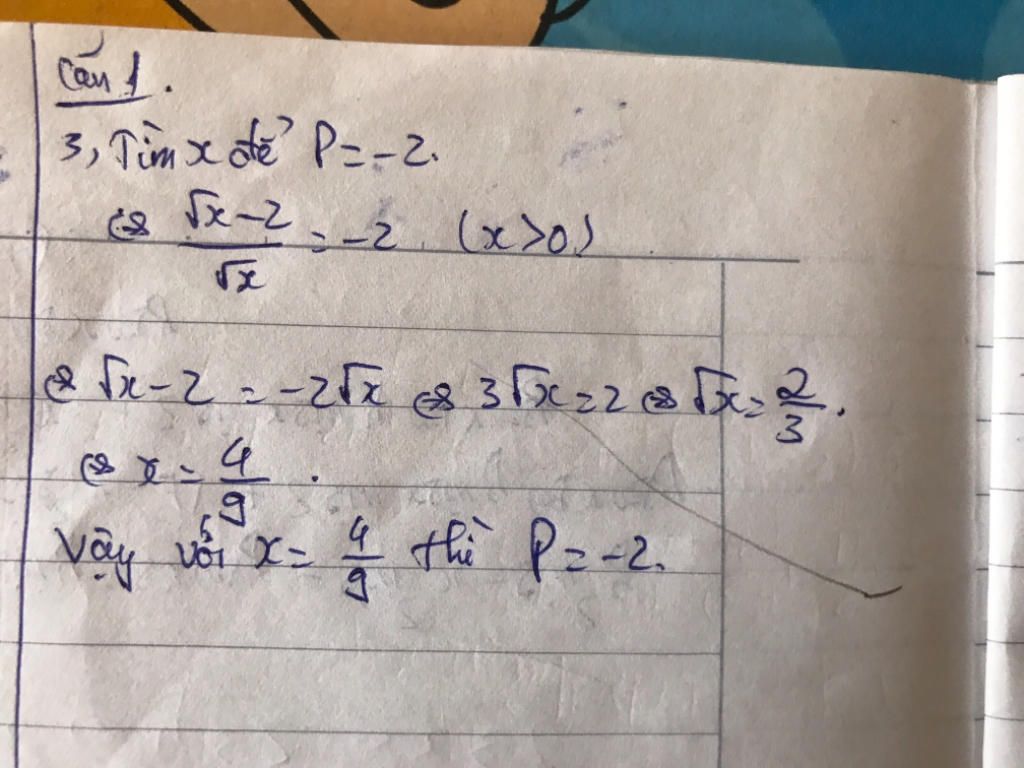 Câu 1.
3, Tìm x để P = -2.
⇔ (√x - 2)/√x = -2 (x > 0)
⇔ √x - 2 = -2√x ⇔ 3√x = 2 ⇔ √x = 2/3.
⇔ x = 4/9.
Vậy với x = 4/9 thì P = -2.